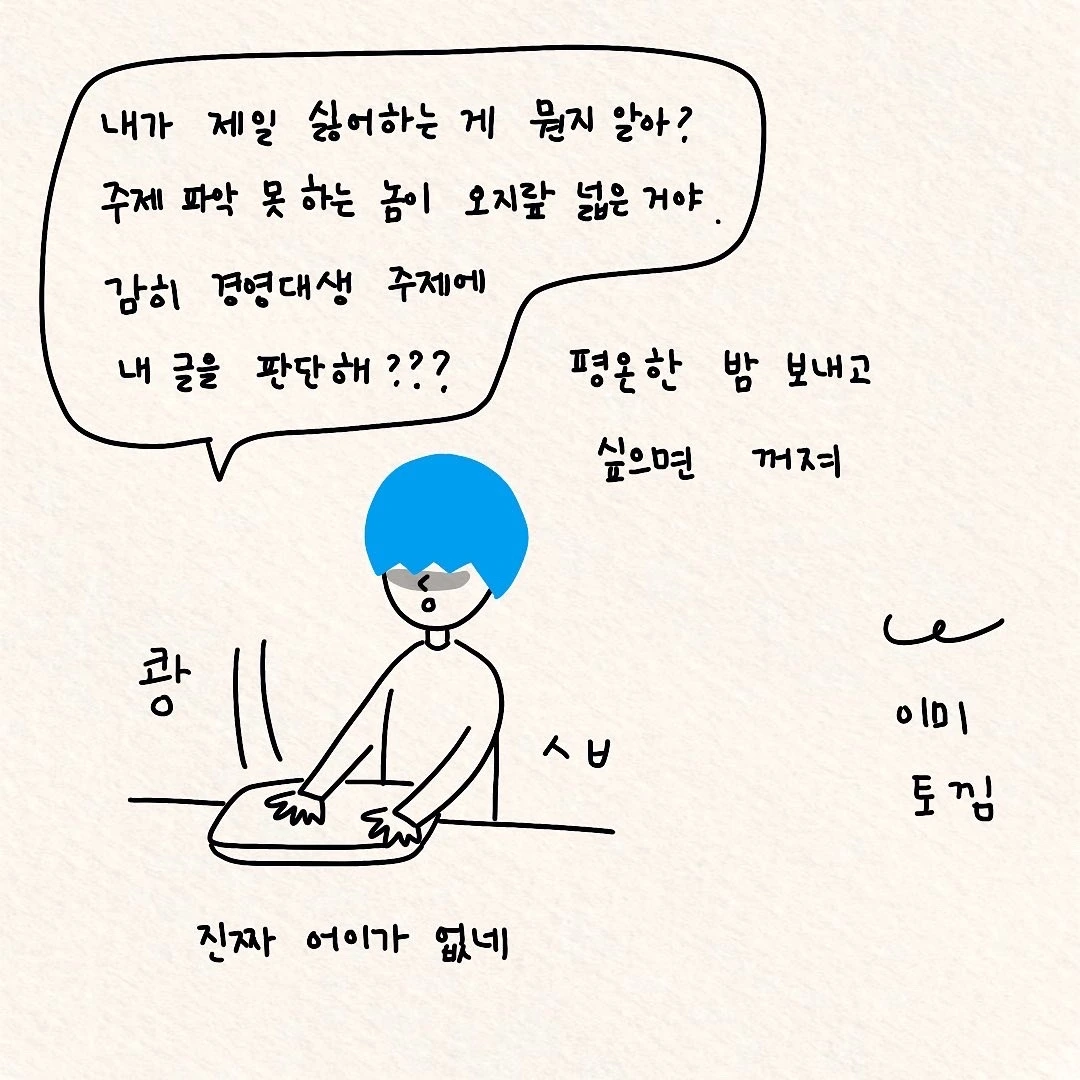 내가 제일 싫어하는 게 뭔지 알아?
주제 파악 못 하는 놈이 오지랖 넓은 거야.
감히 경영대생 주제에
내 글을 판단해???
평온한 밤 보내고
싶으면 꺼져
쾅
ㅅㅂ
이미
토낌
진짜 어이가 없네